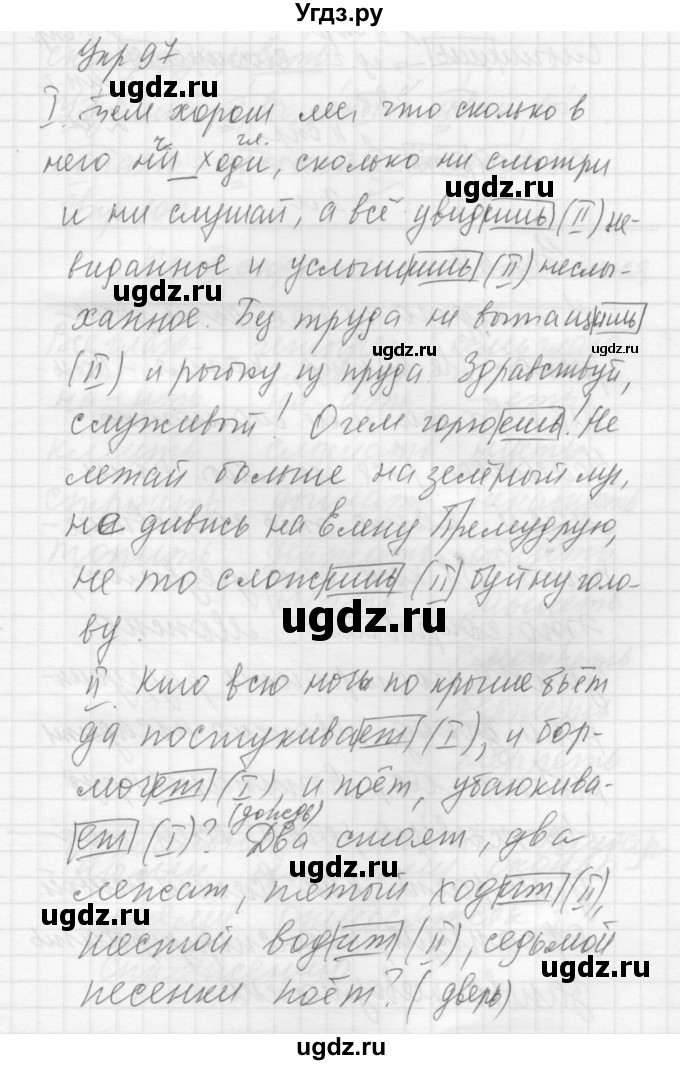 Угдз.ру
Упр 97
ugdz.ru
I. Чем хорош лес, что сколько в
ч. гл.
него ни ходи, сколько ни смотри
ugdz.ru
и ни слушай, а всё увидишь (II) не-
виданное и услышишь (II) неслы-
ugdz.ru
ханное. Без труда не вытащишь
ugdz.ru ugdz.ru
(II) и рыбку из пруда. Здравствуй,
служивый! О чем горюешь! Не
лежай больше на зелёный луг,
не дивись на Елену Премудрую,
не то сложишь (II) буйну голо-
ugdz.ru
ву.
II. Кто всю ночь по крыше бьёт
да постукивает (I), и бор-
ugdz.ru
мочет (I), и поёт, убаюкива-
(дождь)
ет (I)? Два стоят, два
ugdz.ru
лежат, пятый ходит (II),
ugdz.ru
шестой водит (II), седьмой
ugdz.ru
песенки поёт? (дверь)
ugdz.ru